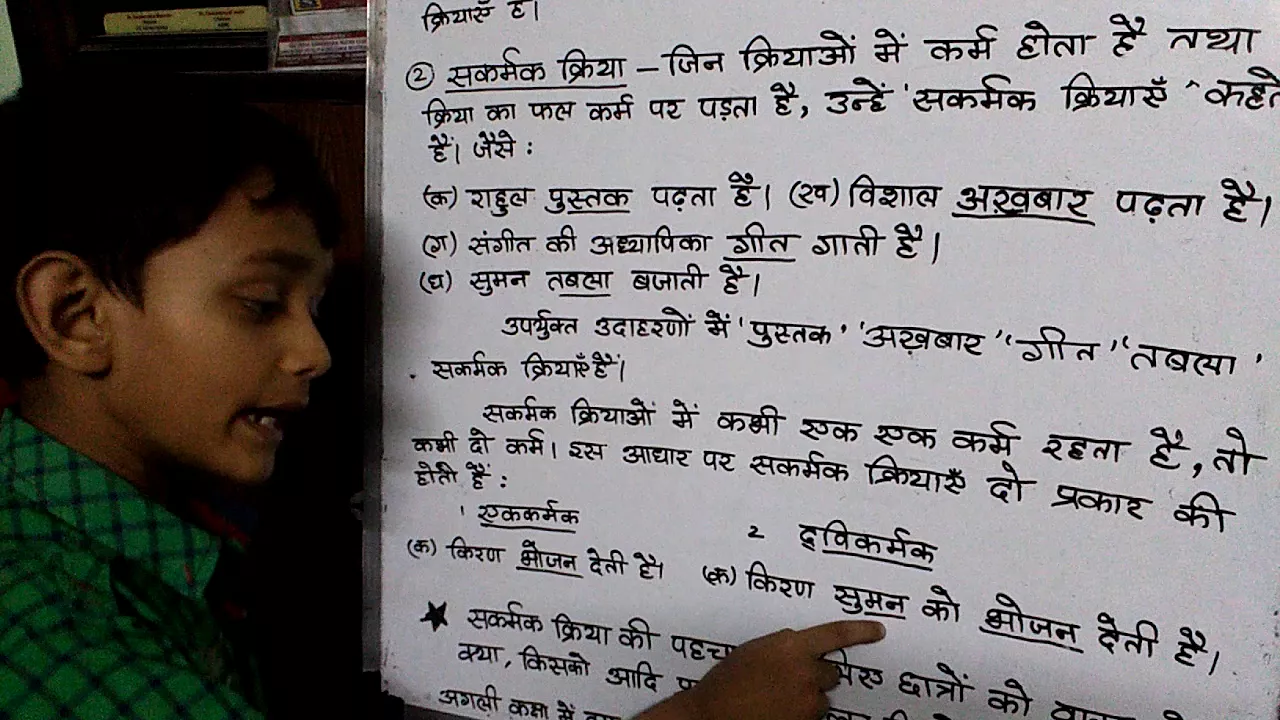 क्रियाएँ हैं।
② सकर्मक क्रिया – जिन क्रियाओं में कर्म होता है तथा
क्रिया का फल कर्म पर पड़ता है, उन्हें 'सकर्मक क्रियाएँ' कहते
हैं। जैसे :
(क) राहुल पुस्तक पढ़ता है। (ख) विशाल अख़बार पढ़ता है।
(ग) संगीत की अध्यापिका गीत गाती है।
(घ) सुमन तबला बजाती है।
उपर्युक्त उदाहरणों में 'पुस्तक' 'अख़बार' 'गीत' 'तबला'
सकर्मक क्रियाएँ हैं।
सकर्मक क्रियाओं में कभी एक एक कर्म रहता है, तो
कभी दो कर्म। इस आधार पर सकर्मक क्रियाएँ दो प्रकार की
होती हैं :
1 एककर्मक
2 द्विकर्मक
(क) किरण भोजन देती है। (क) किरण सुमन को भोजन देती है।
★ सकर्मक क्रिया की छात्रों को
क्या, किसको आदि
अगली कक्षा में